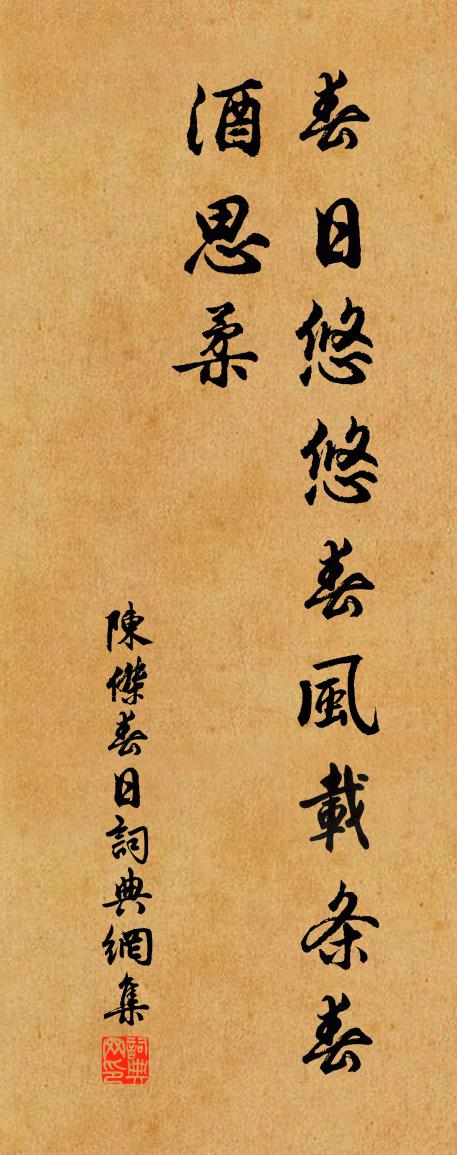 春日悠悠春風載条春
酒思柔
陳傑春日詞典網集
詞典网印